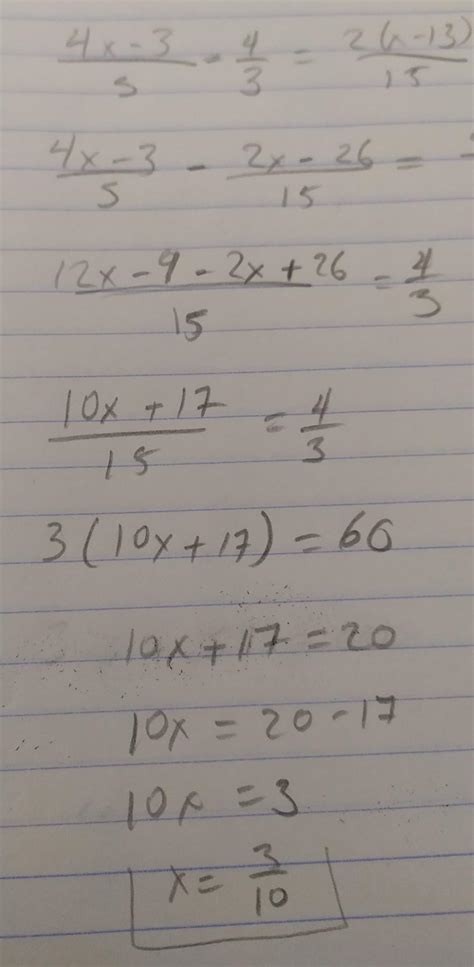 (4x-3)/5 - 4/3 = 2(x-13)/15
(4x-3)/5 - (2x-26)/15 =
(12x-9-2x+26)/15 = 4/3
(10x+17)/15 = 4/3
3(10x+17) = 60
10x+17 = 20
10x = 20-17
10x = 3
x = 3/10